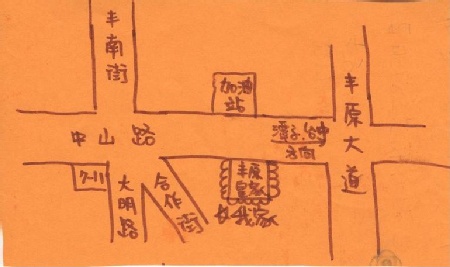 丰南街
加油站
丰原大道
中山路
潭子.台中
方向
7-11
大明路
合作街
丰原
我家